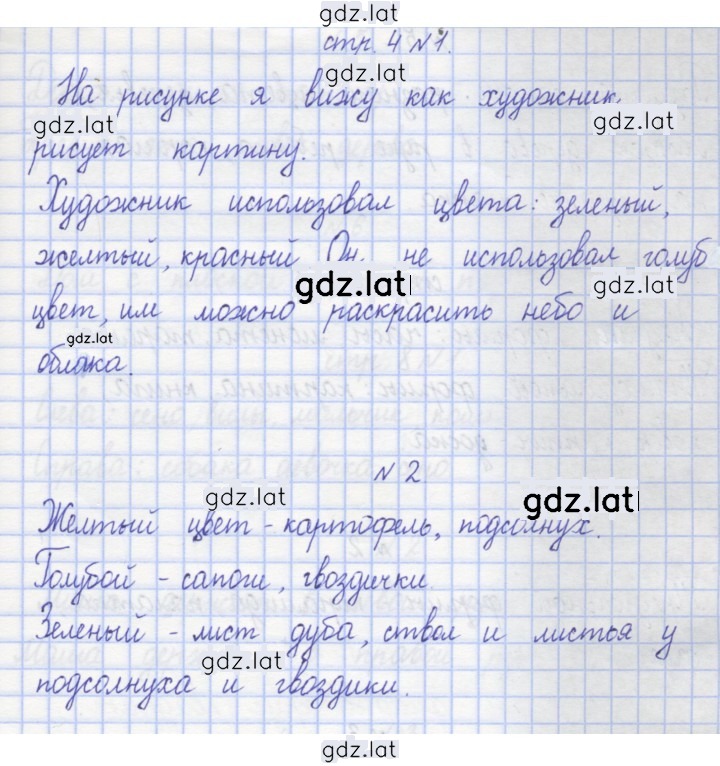 gdz.lat
стр. 4 №1.
gdz.lat
На рисунке я вижу как художник
gdz.lat gdz.lat
рисует картину.
gdz.lat gdz.lat
Художник использовал цвета: зеленый,
желтый, красный Он не использовал голуб
gdz.lat gdz.lat
цвет, им можно раскрасить небо и
gdz.lat
облака.
№ 2
gdz.lat gdz.lat
Желтый цвет - картофель, подсолнух.
Голубой - сапоги, гвоздички.
Зеленый - лист дуба, ствол и листья у
gdz.lat
подсолнуха и гвоздики.
gdz.lat